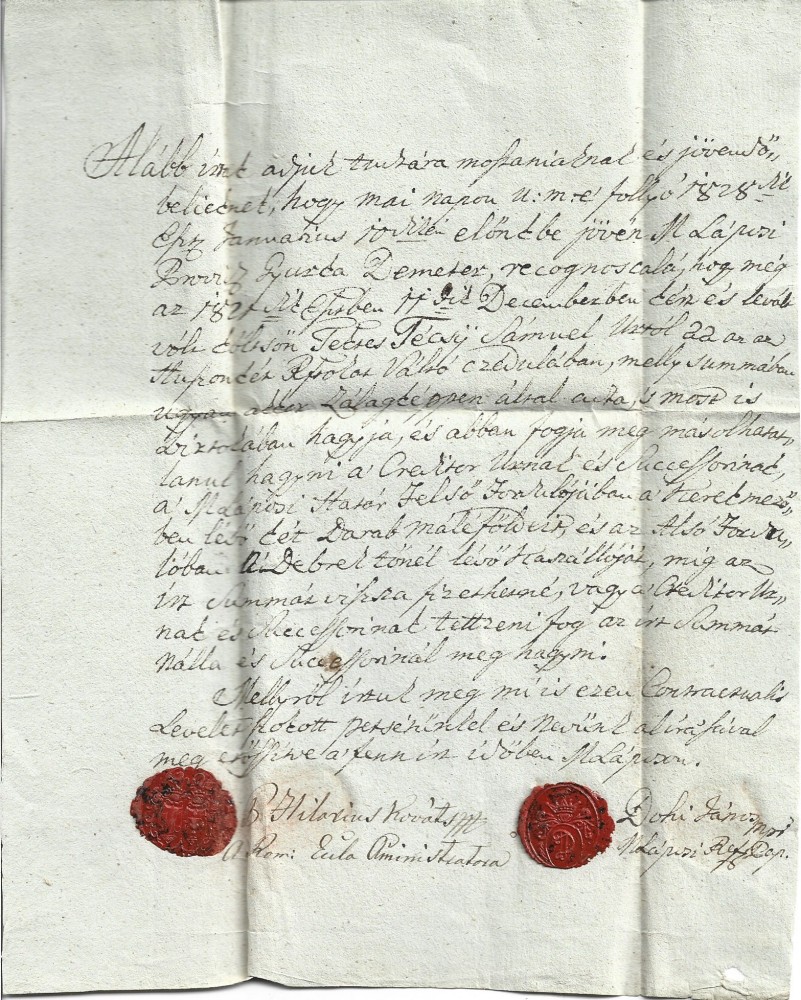 Alább írtt adjuk tudtára mostaniaknak és jövendő„
belieknek, hogy mai napon u: m: e' follyó 1828 dik
Eszt Januarius 10dikén előnkbe jövén MLáposi
Provis Gyurka Demeter, recognoscalá, hogy még
az 1821 dik Esztben 11dik Decemberben kért és levált
vólt költsön Tettes Técsij Sámuel Urtól 22 az az
Rftokat Váltó czedulában, melly summában
ugyan akkor Zálagképpen által adta, s most is
birtokában hagyja, és abban fogja meg másolhatat„
lanul hagyni a' Creditor Urnak és Successorinak,
a' MLáposi Határ Felső Fordulójában a' Kerekmező„
ben lévő két Darab maléföldeit, és az Alsó Fordu„
lóban A' Debrek tőnél lévő Kaszállóját, mig az
írt Summát vissza fizethetné, vagy a' Creditor Ur„
nak és Successorinak tettzeni fog az írt Summát
nálla és Successorinál meg hagyni.
Mellyről írtuk meg mi is ezen Contractualis
Levelet szokott petsétünkkel és Nevünk aláírásával
meg erősítve a' fenn írt időben MLáposon.
P Hilarius Kováts mp
A Rom: Ecla Aministratora
Dohi János mpr
MLáposi Ref Pap.